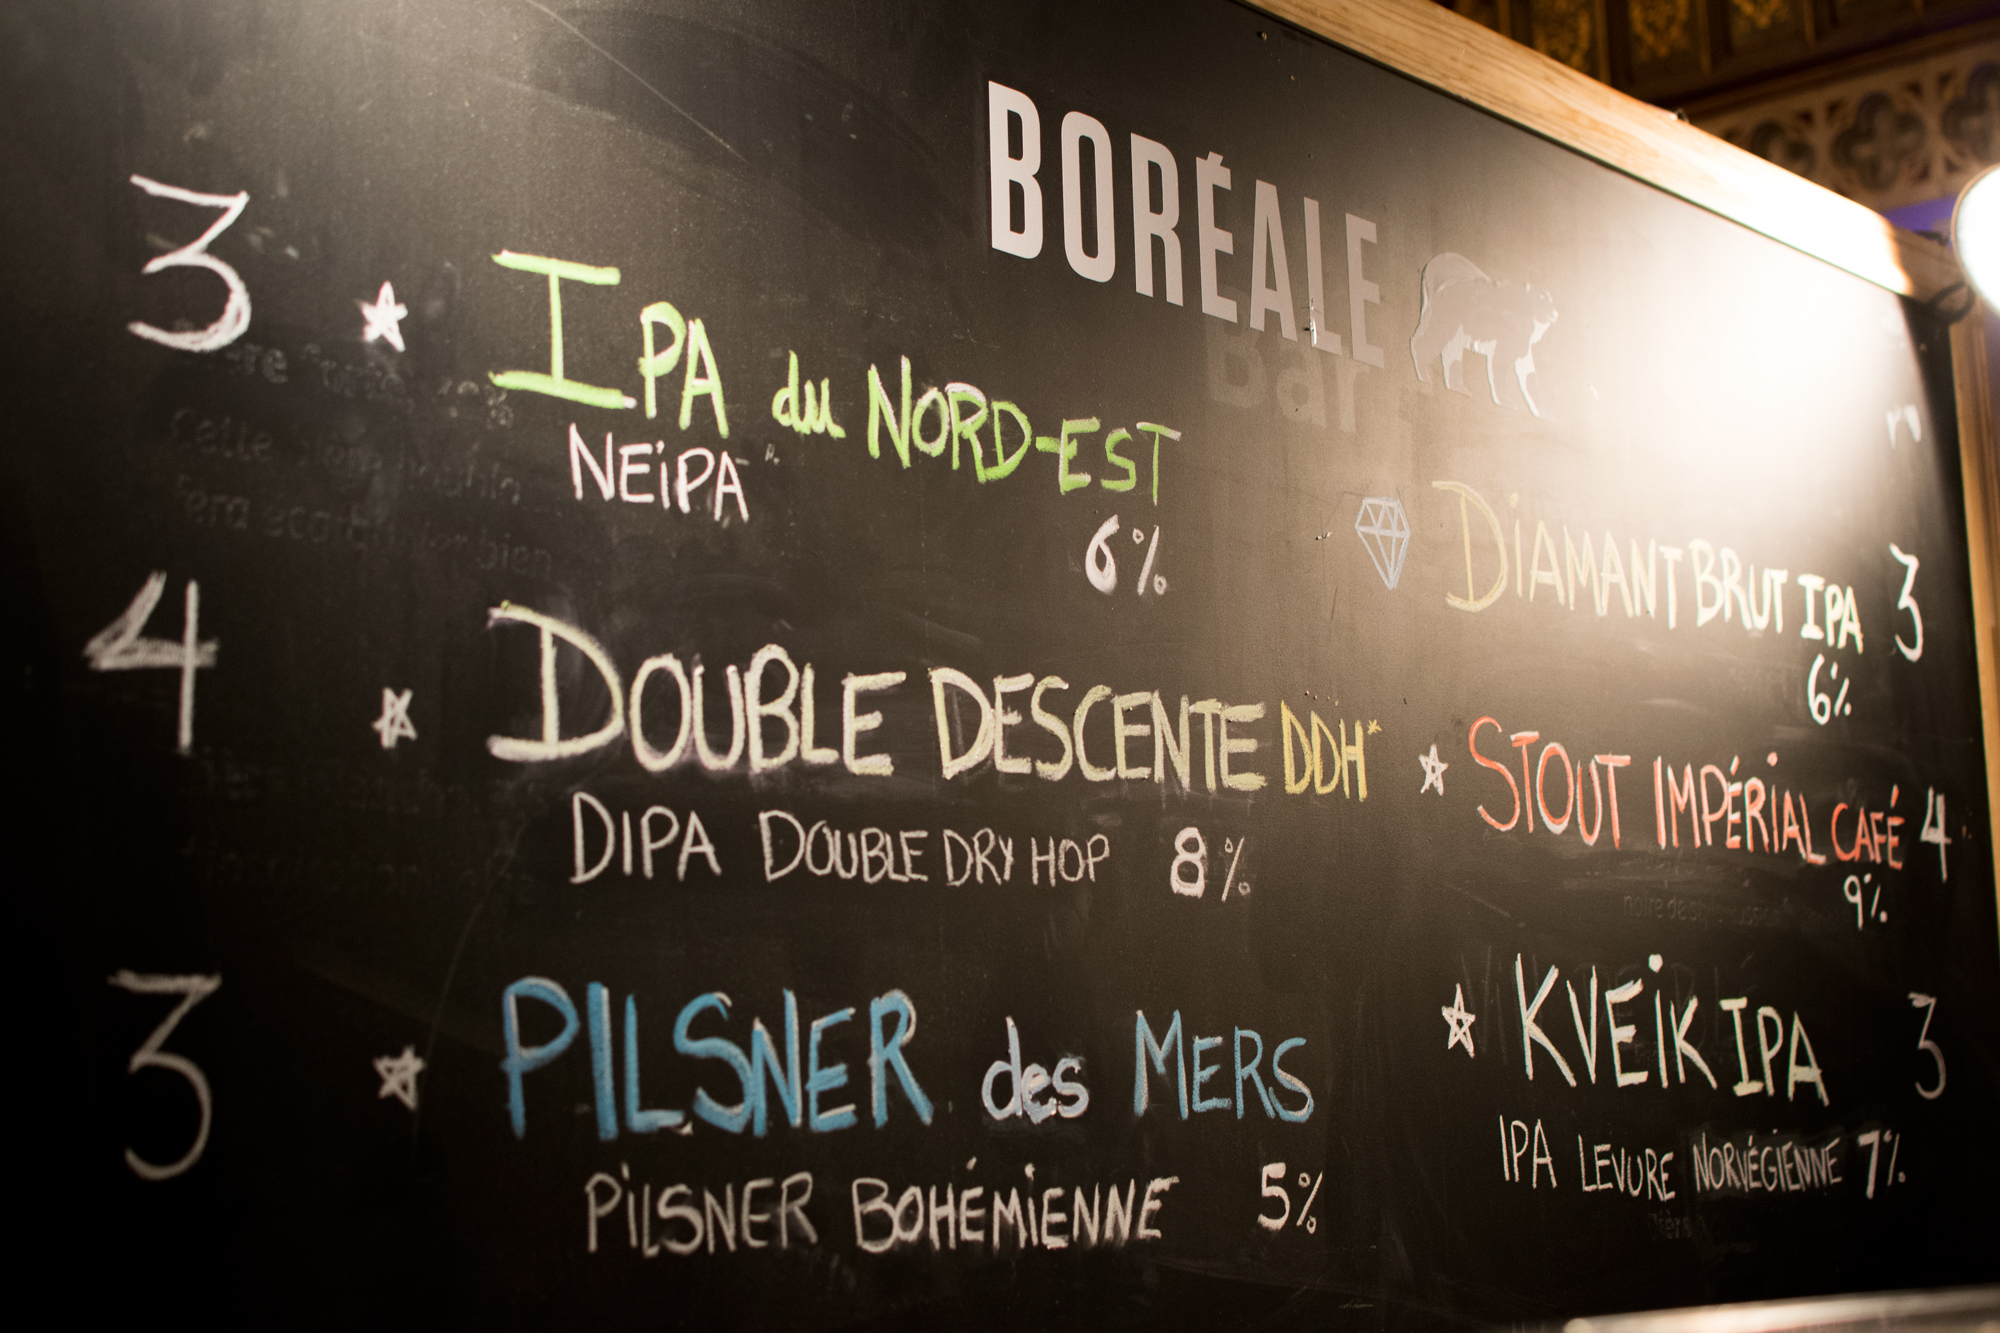 BORÉALE
Bar
3 IPA du NORD-EST
NEiPA
6%
4 DOUBLE DESCENTE DDH*
DIPA DOUBLE DRY HOP 8%
3 PILSNER des MERS
PiLSNER BOHÉMiENNE 5%
DiAMANT BRUT IPA 3
6%
STOUT IMPÉRiAL CAFÉ 4
9%
KVEiK IPA 3
IPA LEVURE NORVÉGIENNE 7%